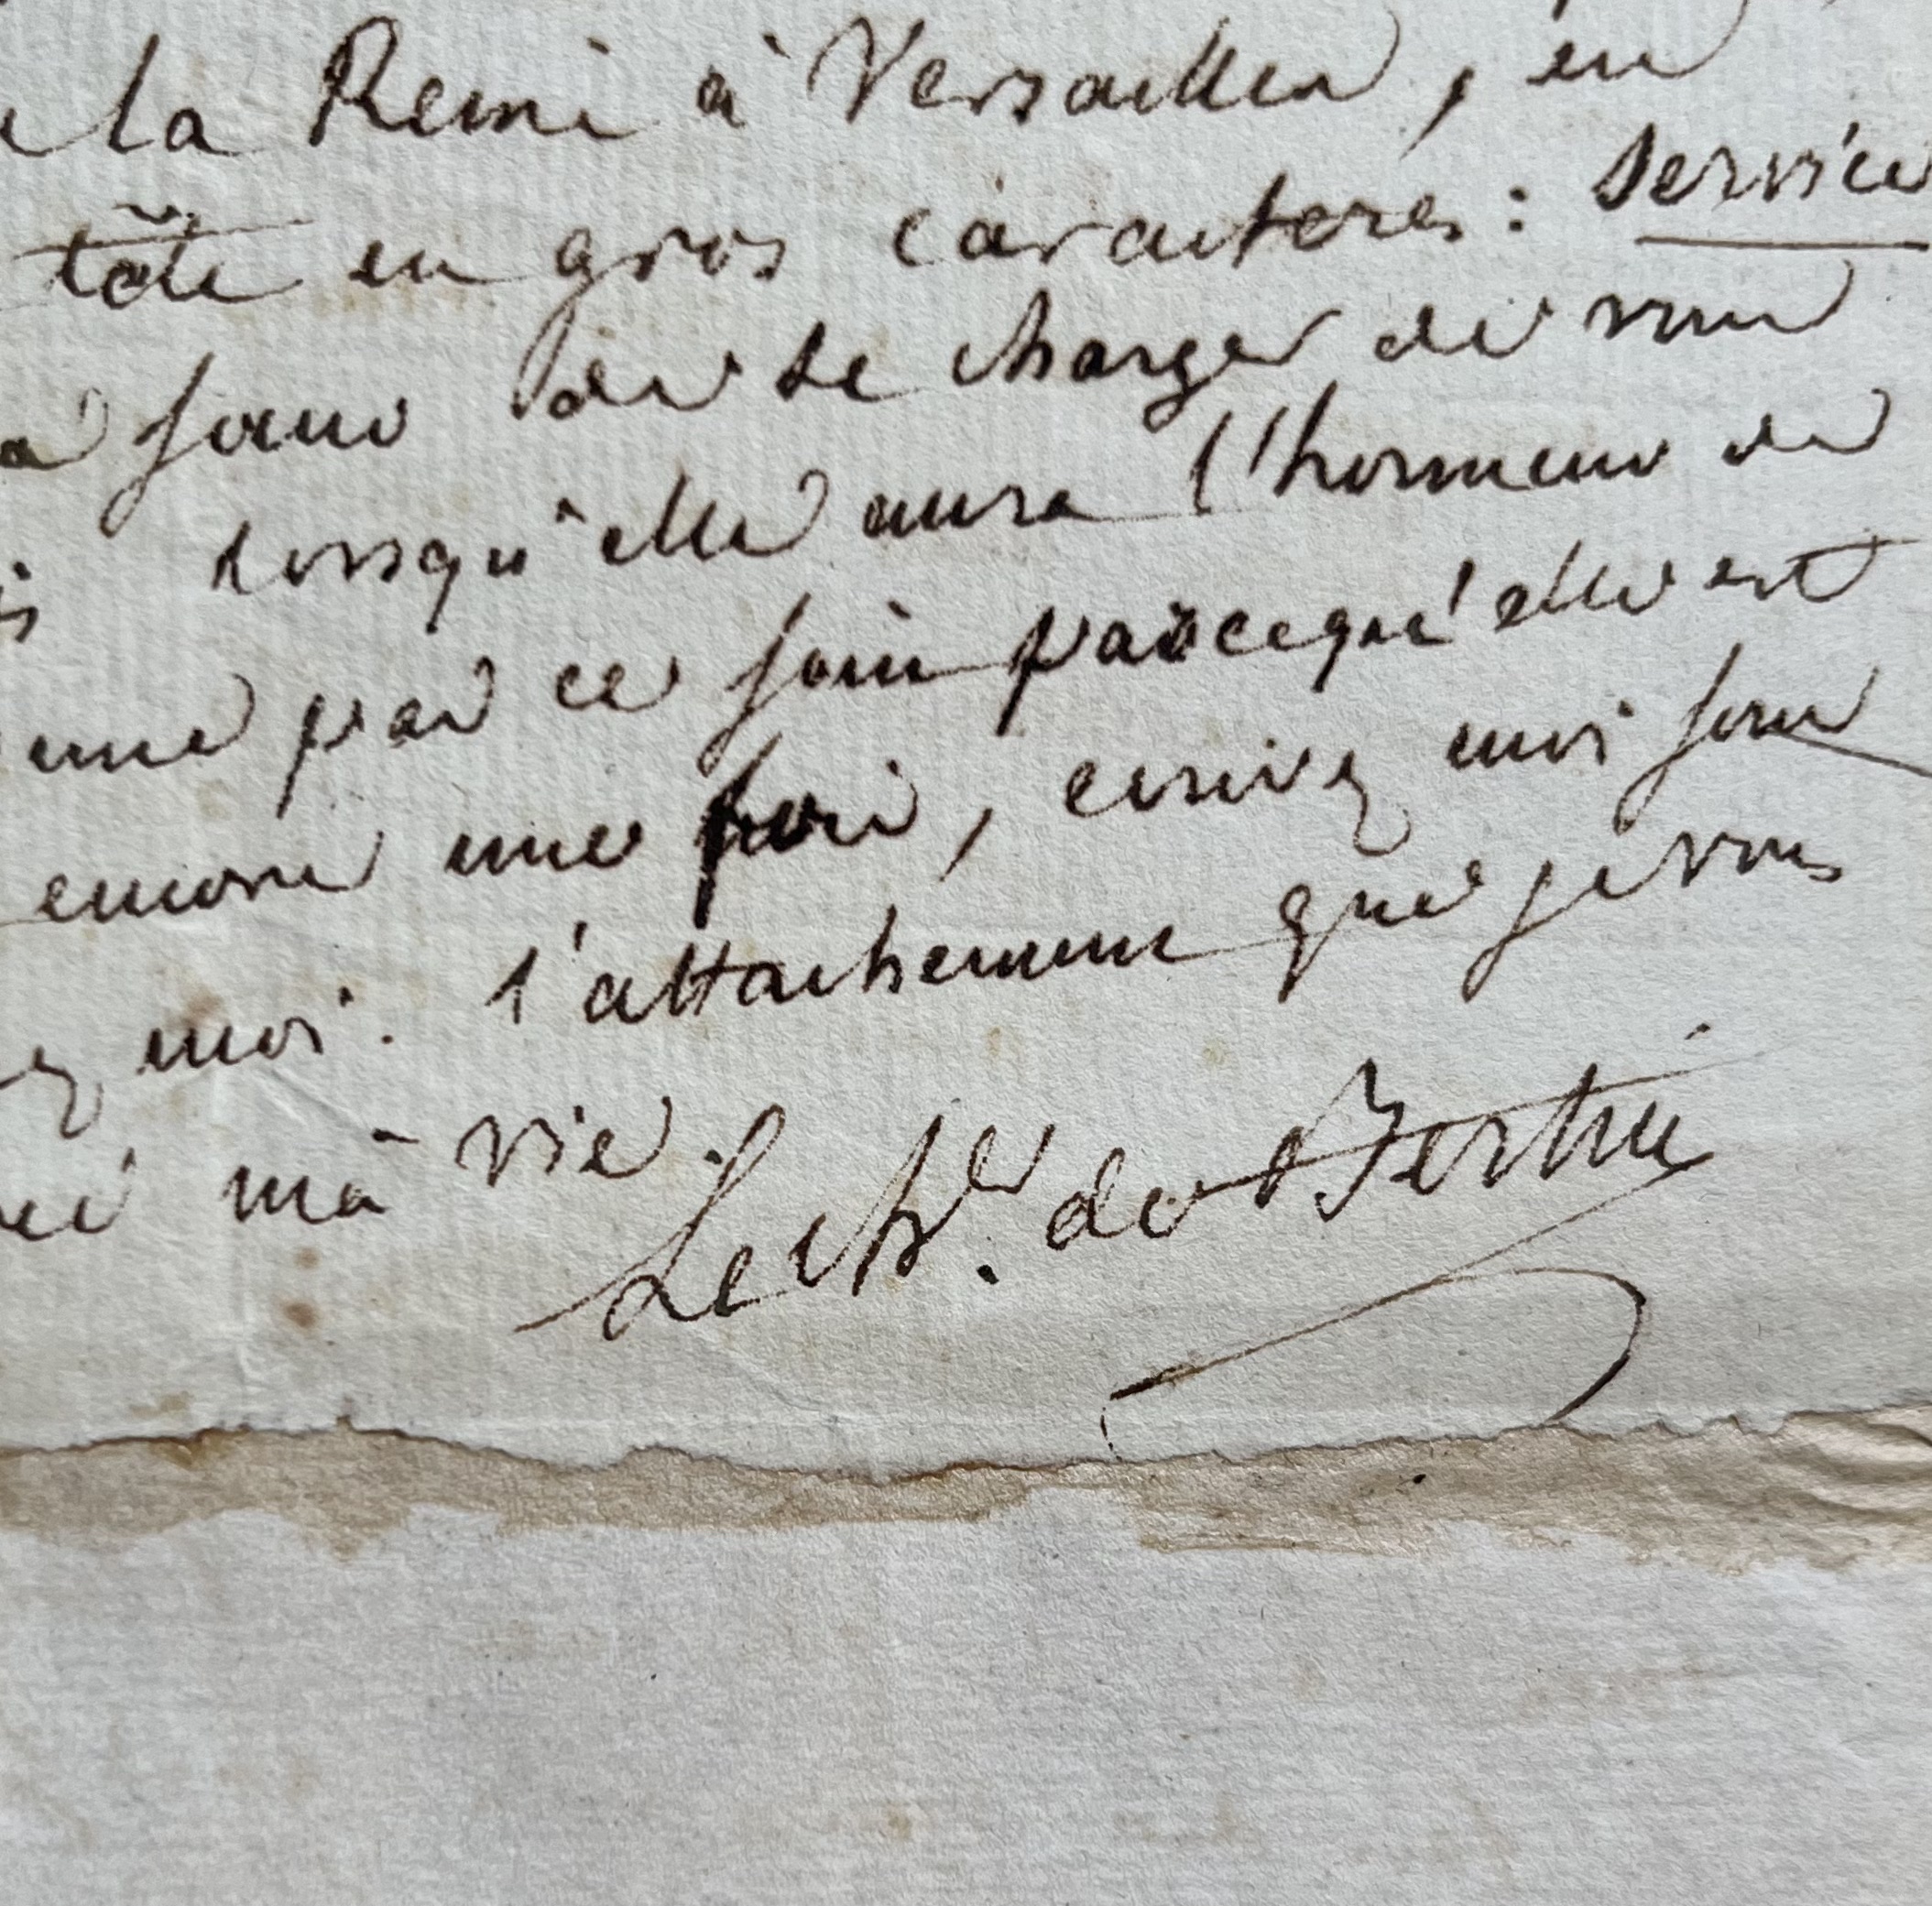 la Reine à Versailles, en
tête en gros caracteres : service
a soeur de se charger de vous
lorsqu'elle aura l'honneur de
une par ce soin parcequ'elle est
encore une fois, ecrivez moi sous
moi. l'attachement que je vous
ma vie.
Le ch.er de Bertin